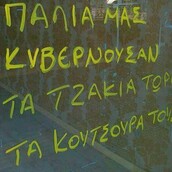 ΠΑΛΙΑ ΜΑΣ
ΚΥΒΕΡΝΟΥΣΑΝ
ΤΑ ΤΖΑΚΙΑ ΤΩΡΑ
ΤΑ ΚΟΥΤΣΟΥΡΑ ΤΟΥΣ